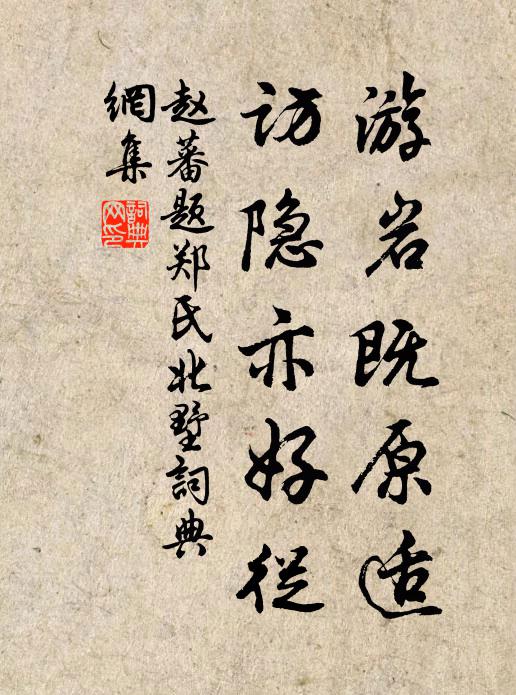 游岩既原适
访隐亦好從
赵蕃题郑氏北墅詞典
網集
詞典
网印